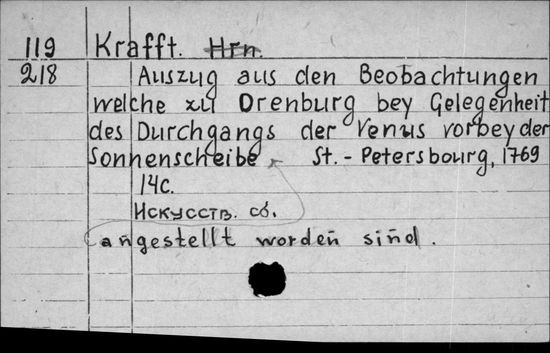 119 Krafft. Hrn.
218 Auszug aus den Beobachtungen
welche zu Orenburg bey Gelegenheit
des Durchgangs der Venus vorbey der
Sonnenscheibe St.-Petersbourg, 1769
14c.
Искусств. сб.
angestellt worden sind.